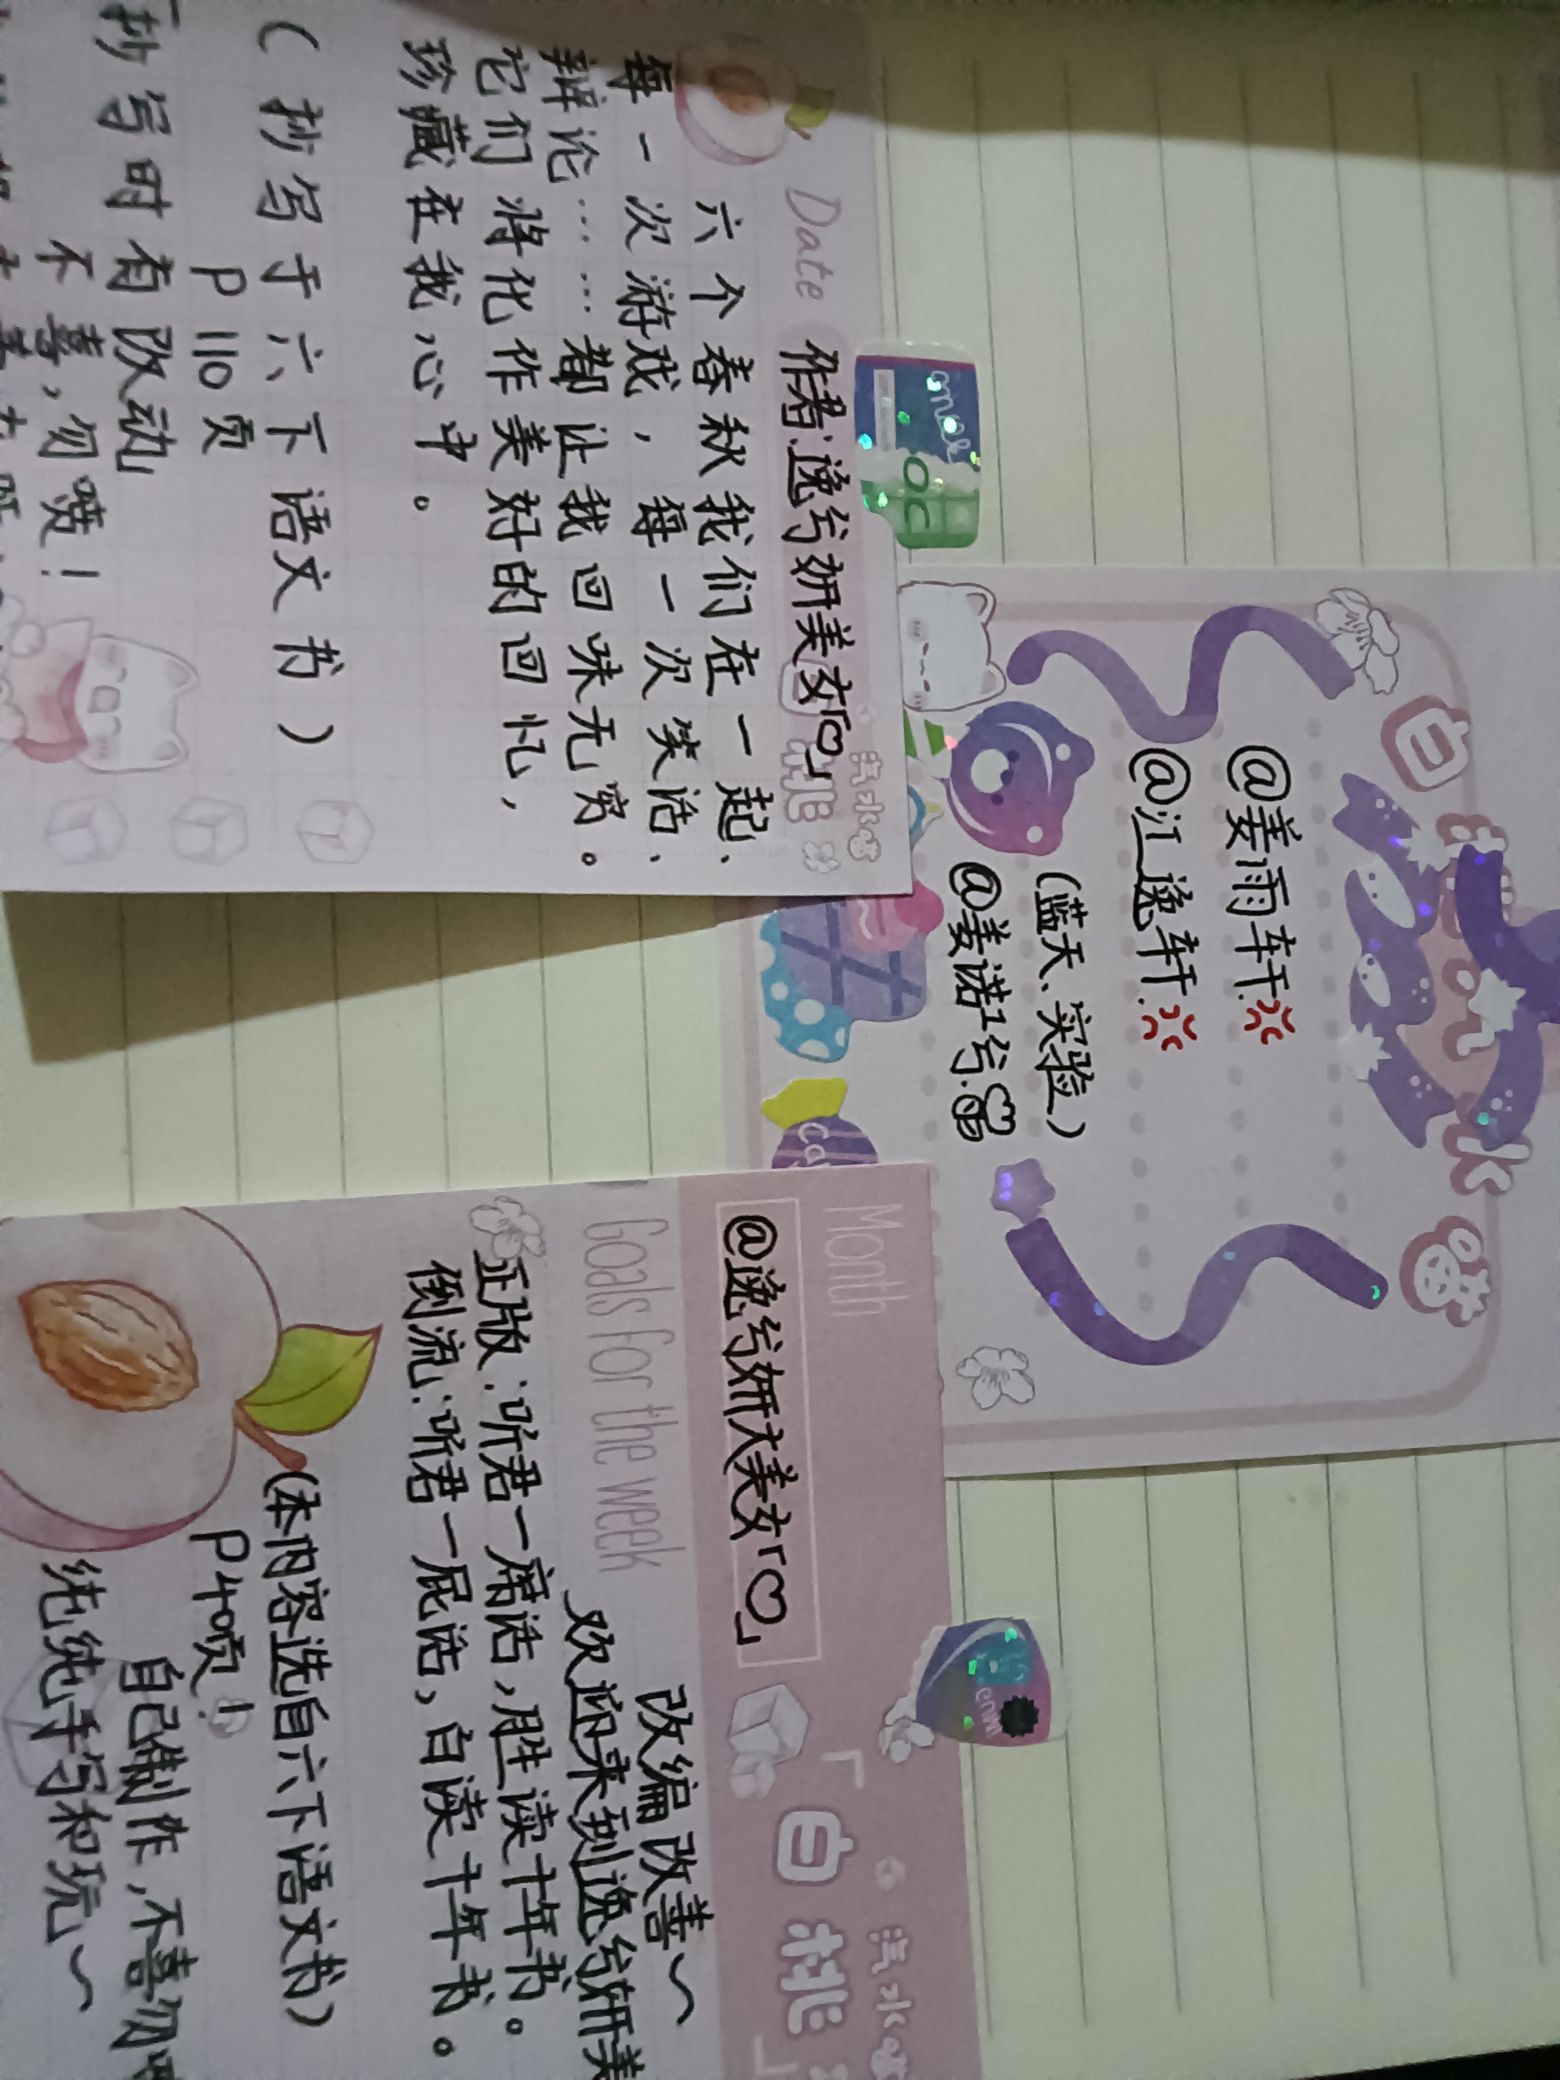 Date
作者:逸兮妍美女「♡」
汽水喵
桃
六个春秋我们在一起、
每一次游戏,每一次笑话、
辩论……都让我回味无穷。
它们将化作美好的回忆,
珍藏在我心中。
(抄写于六下语文书)
P110页
抄写时有改动
不喜,勿喷!
白
水
喵
@姜雨轩
@江逸轩
(蓝天、实验)
@姜诺兮
Month
@逸兮妍美女「♡」
「白桃
汽水喵
Goals for the week
改编改善~
欢迎来到逸兮妍美
正版:听君一席话,胜读十年书。
倒流:听君一屁话,白读十年书。
(本内容选自六下语文书)
P40页!
自己制作,不喜勿
纯纯手写和玩~